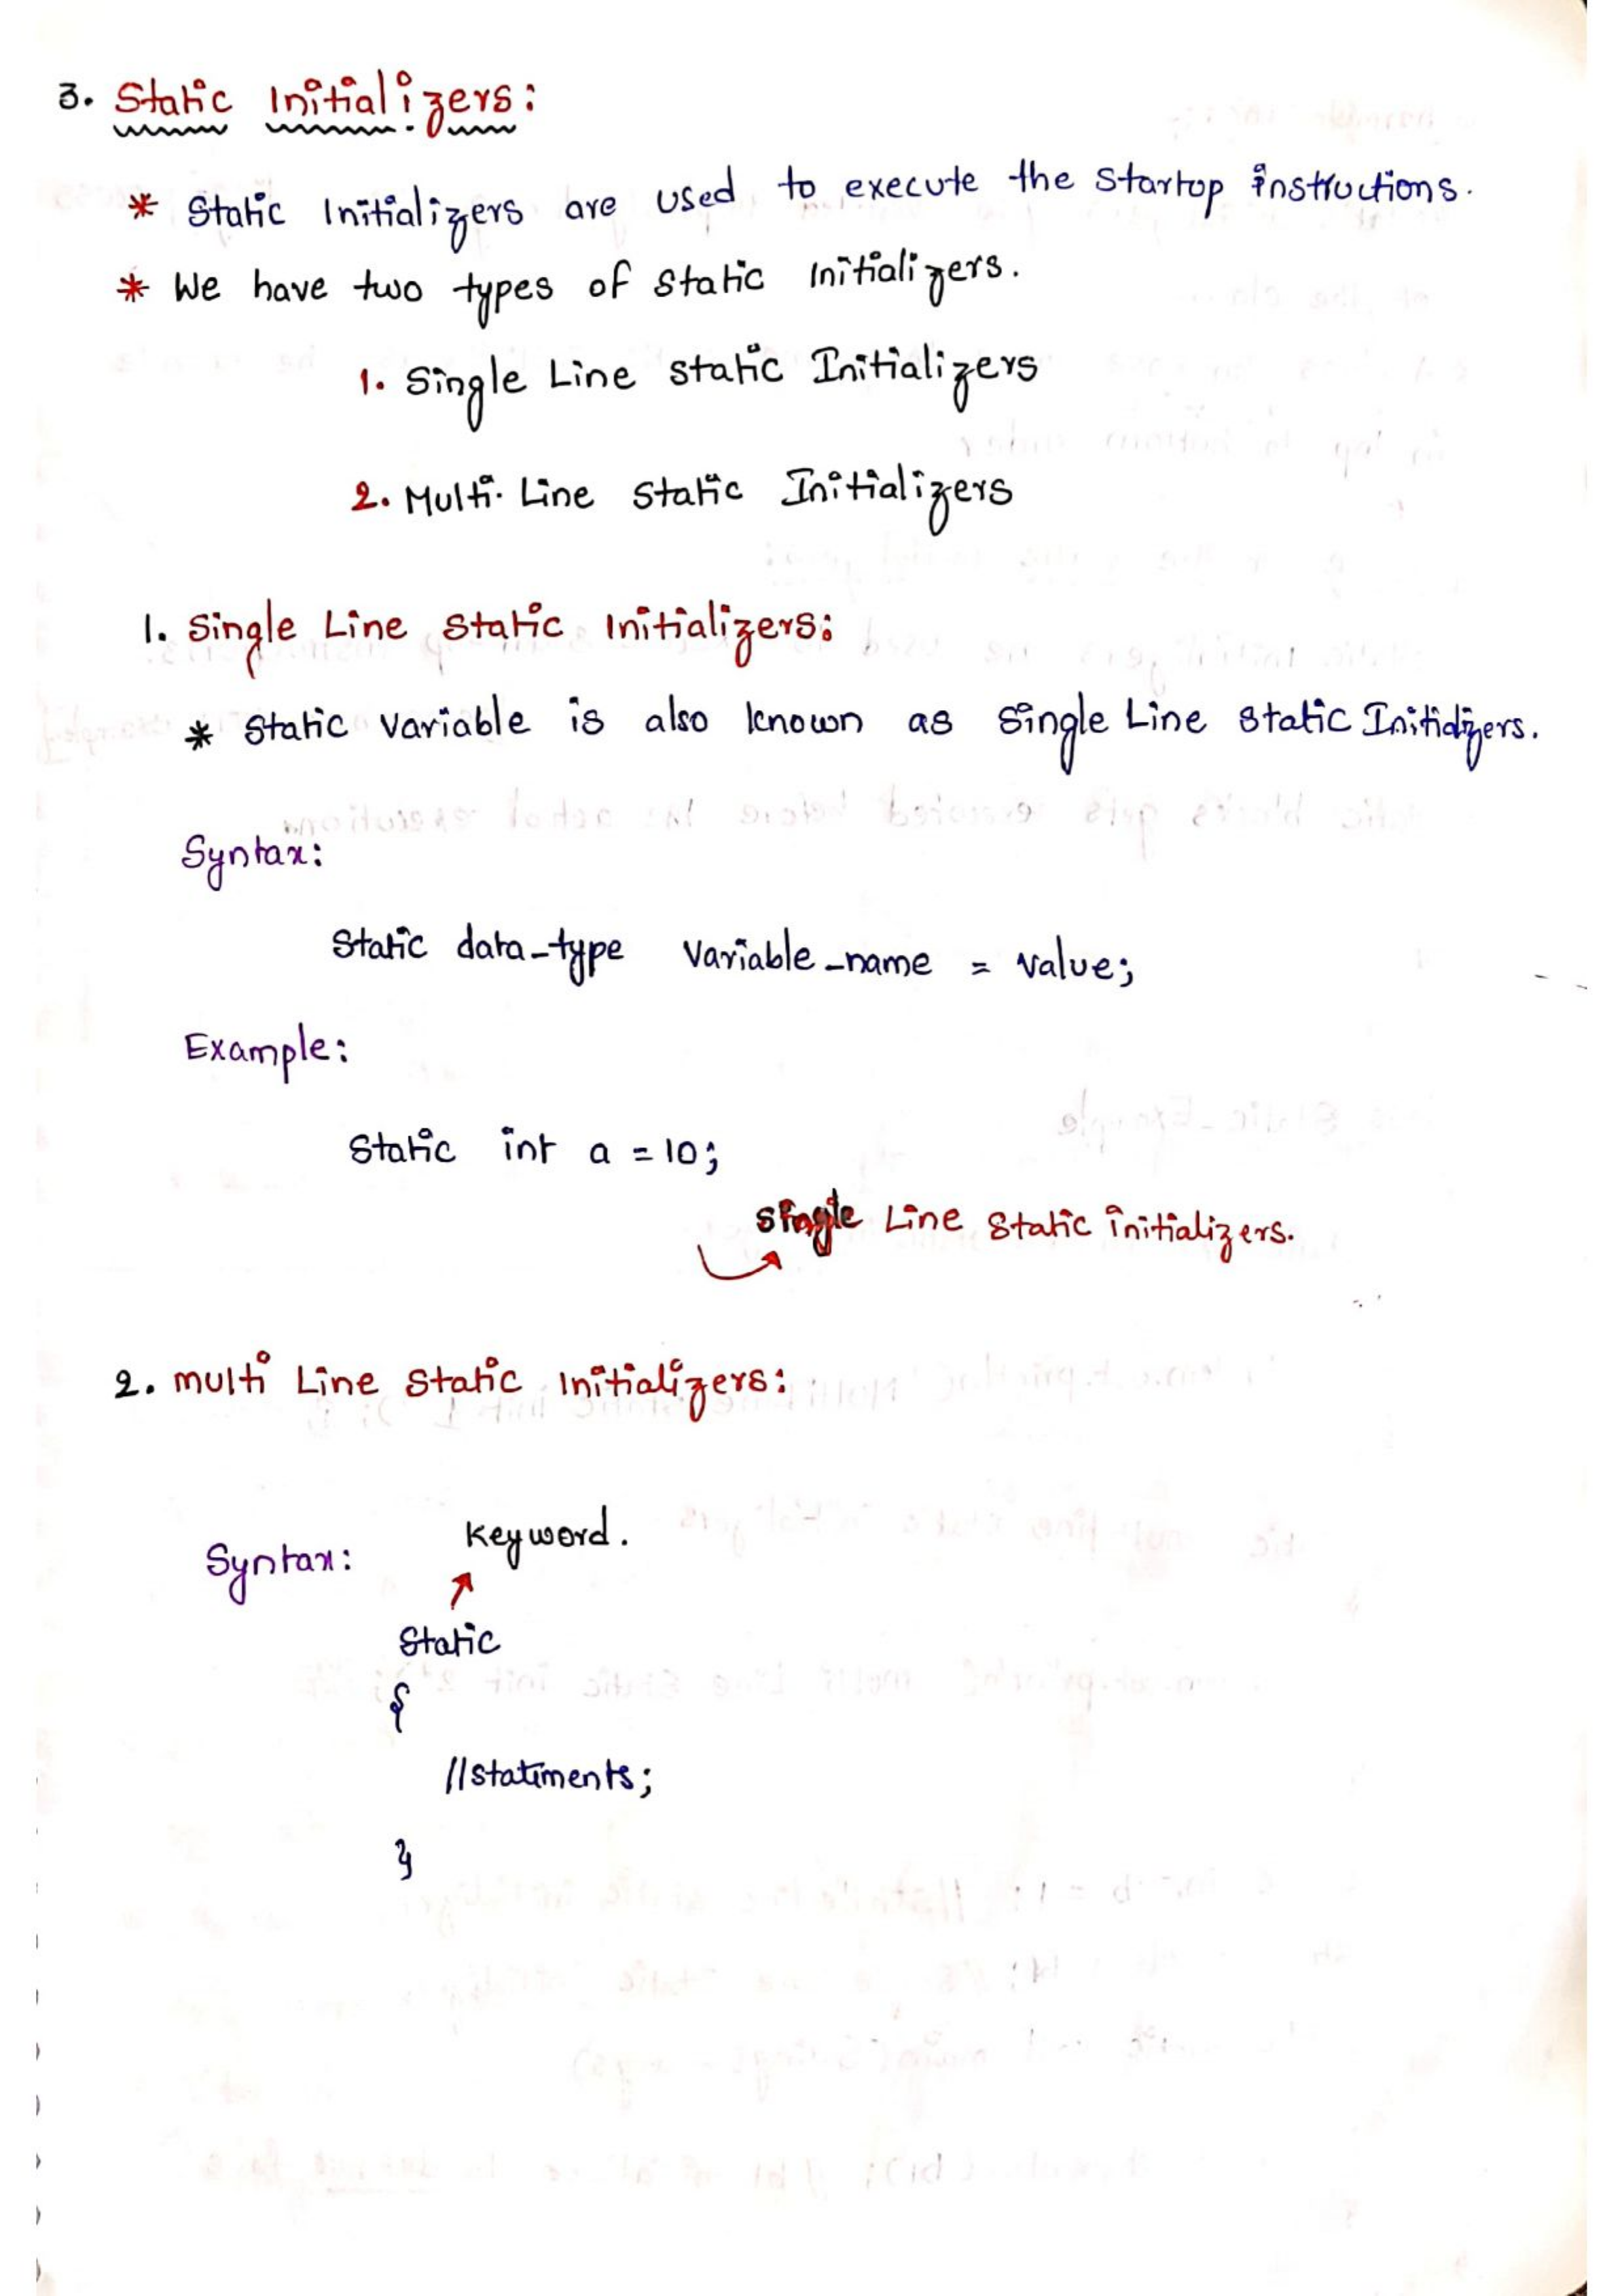 3. Static Initializers:
* Static Initializers are used to execute the startup instructions.
* We have two types of static Initializers.
1. Single Line static Initializers
2. Multi Line static Initializers
1. Single Line static Initializers:
* Static variable is also known as Single Line static Initializers.
Syntax:
Static data-type variable-name = value;
Example:
Static int a = 10;
Single Line static initializers.
2. multi Line static Initializers:
Keyword.
Syntax:
Static
{
//statements;
}